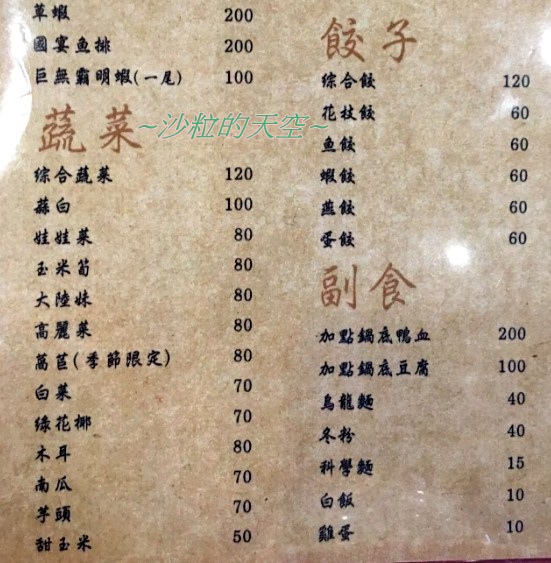 草蝦 200
國宴魚排 200
巨無霸明蝦(一尾) 100
蔬菜
~沙粒的天空~
綜合蔬菜 120
蒜白 100
娃娃菜 80
玉米筍 80
大陸妹 80
高麗菜 80
萵苣(季節限定) 80
白菜 70
綠花椰 70
木耳 80
南瓜 70
芋頭 70
甜玉米 50
餃子
綜合餃 120
花枝餃 60
魚餃 60
蝦餃 60
燕餃 60
蛋餃 60
副食
加點鍋底鴨血 200
加點鍋底豆腐 100
烏龍麵 40
冬粉 40
科學麵 15
白飯 10
雞蛋 10